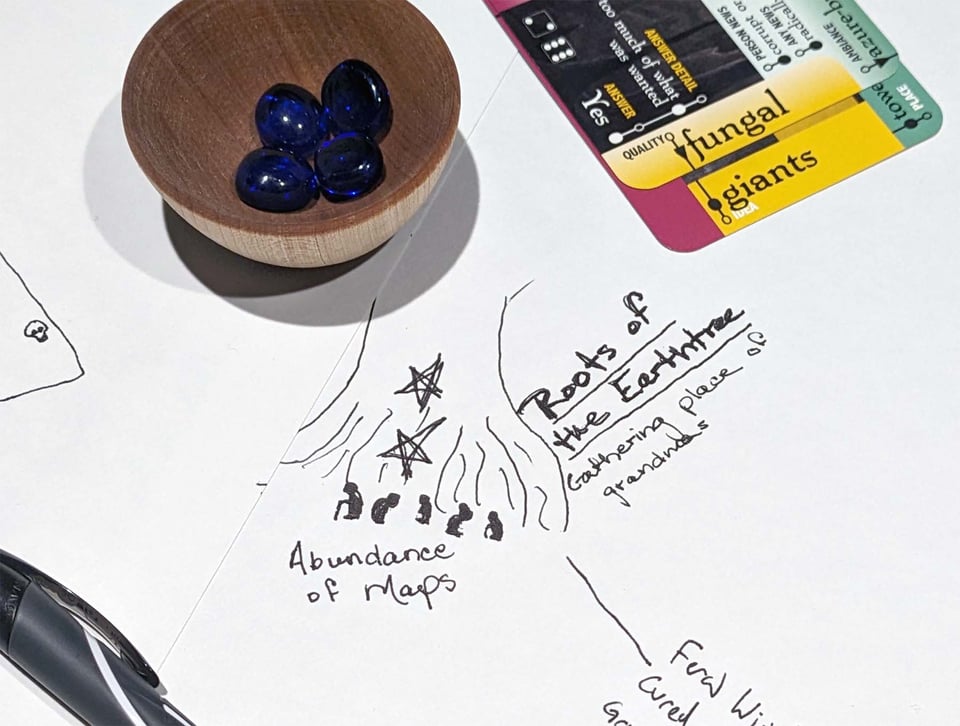 azure-b
AMBIANCE
ANY NEWS
radicall
PERSON NEWS
corrupt or
PLACE
towe
ANSWER DETAIL
too much of what
was wanted
ANSWER
Yes
QUALITY
fungal
giants
IDEA
Roots of
the Earthtree
Gathering place of
grandmas
Abundance
of Maps
Feral Wi
Cured